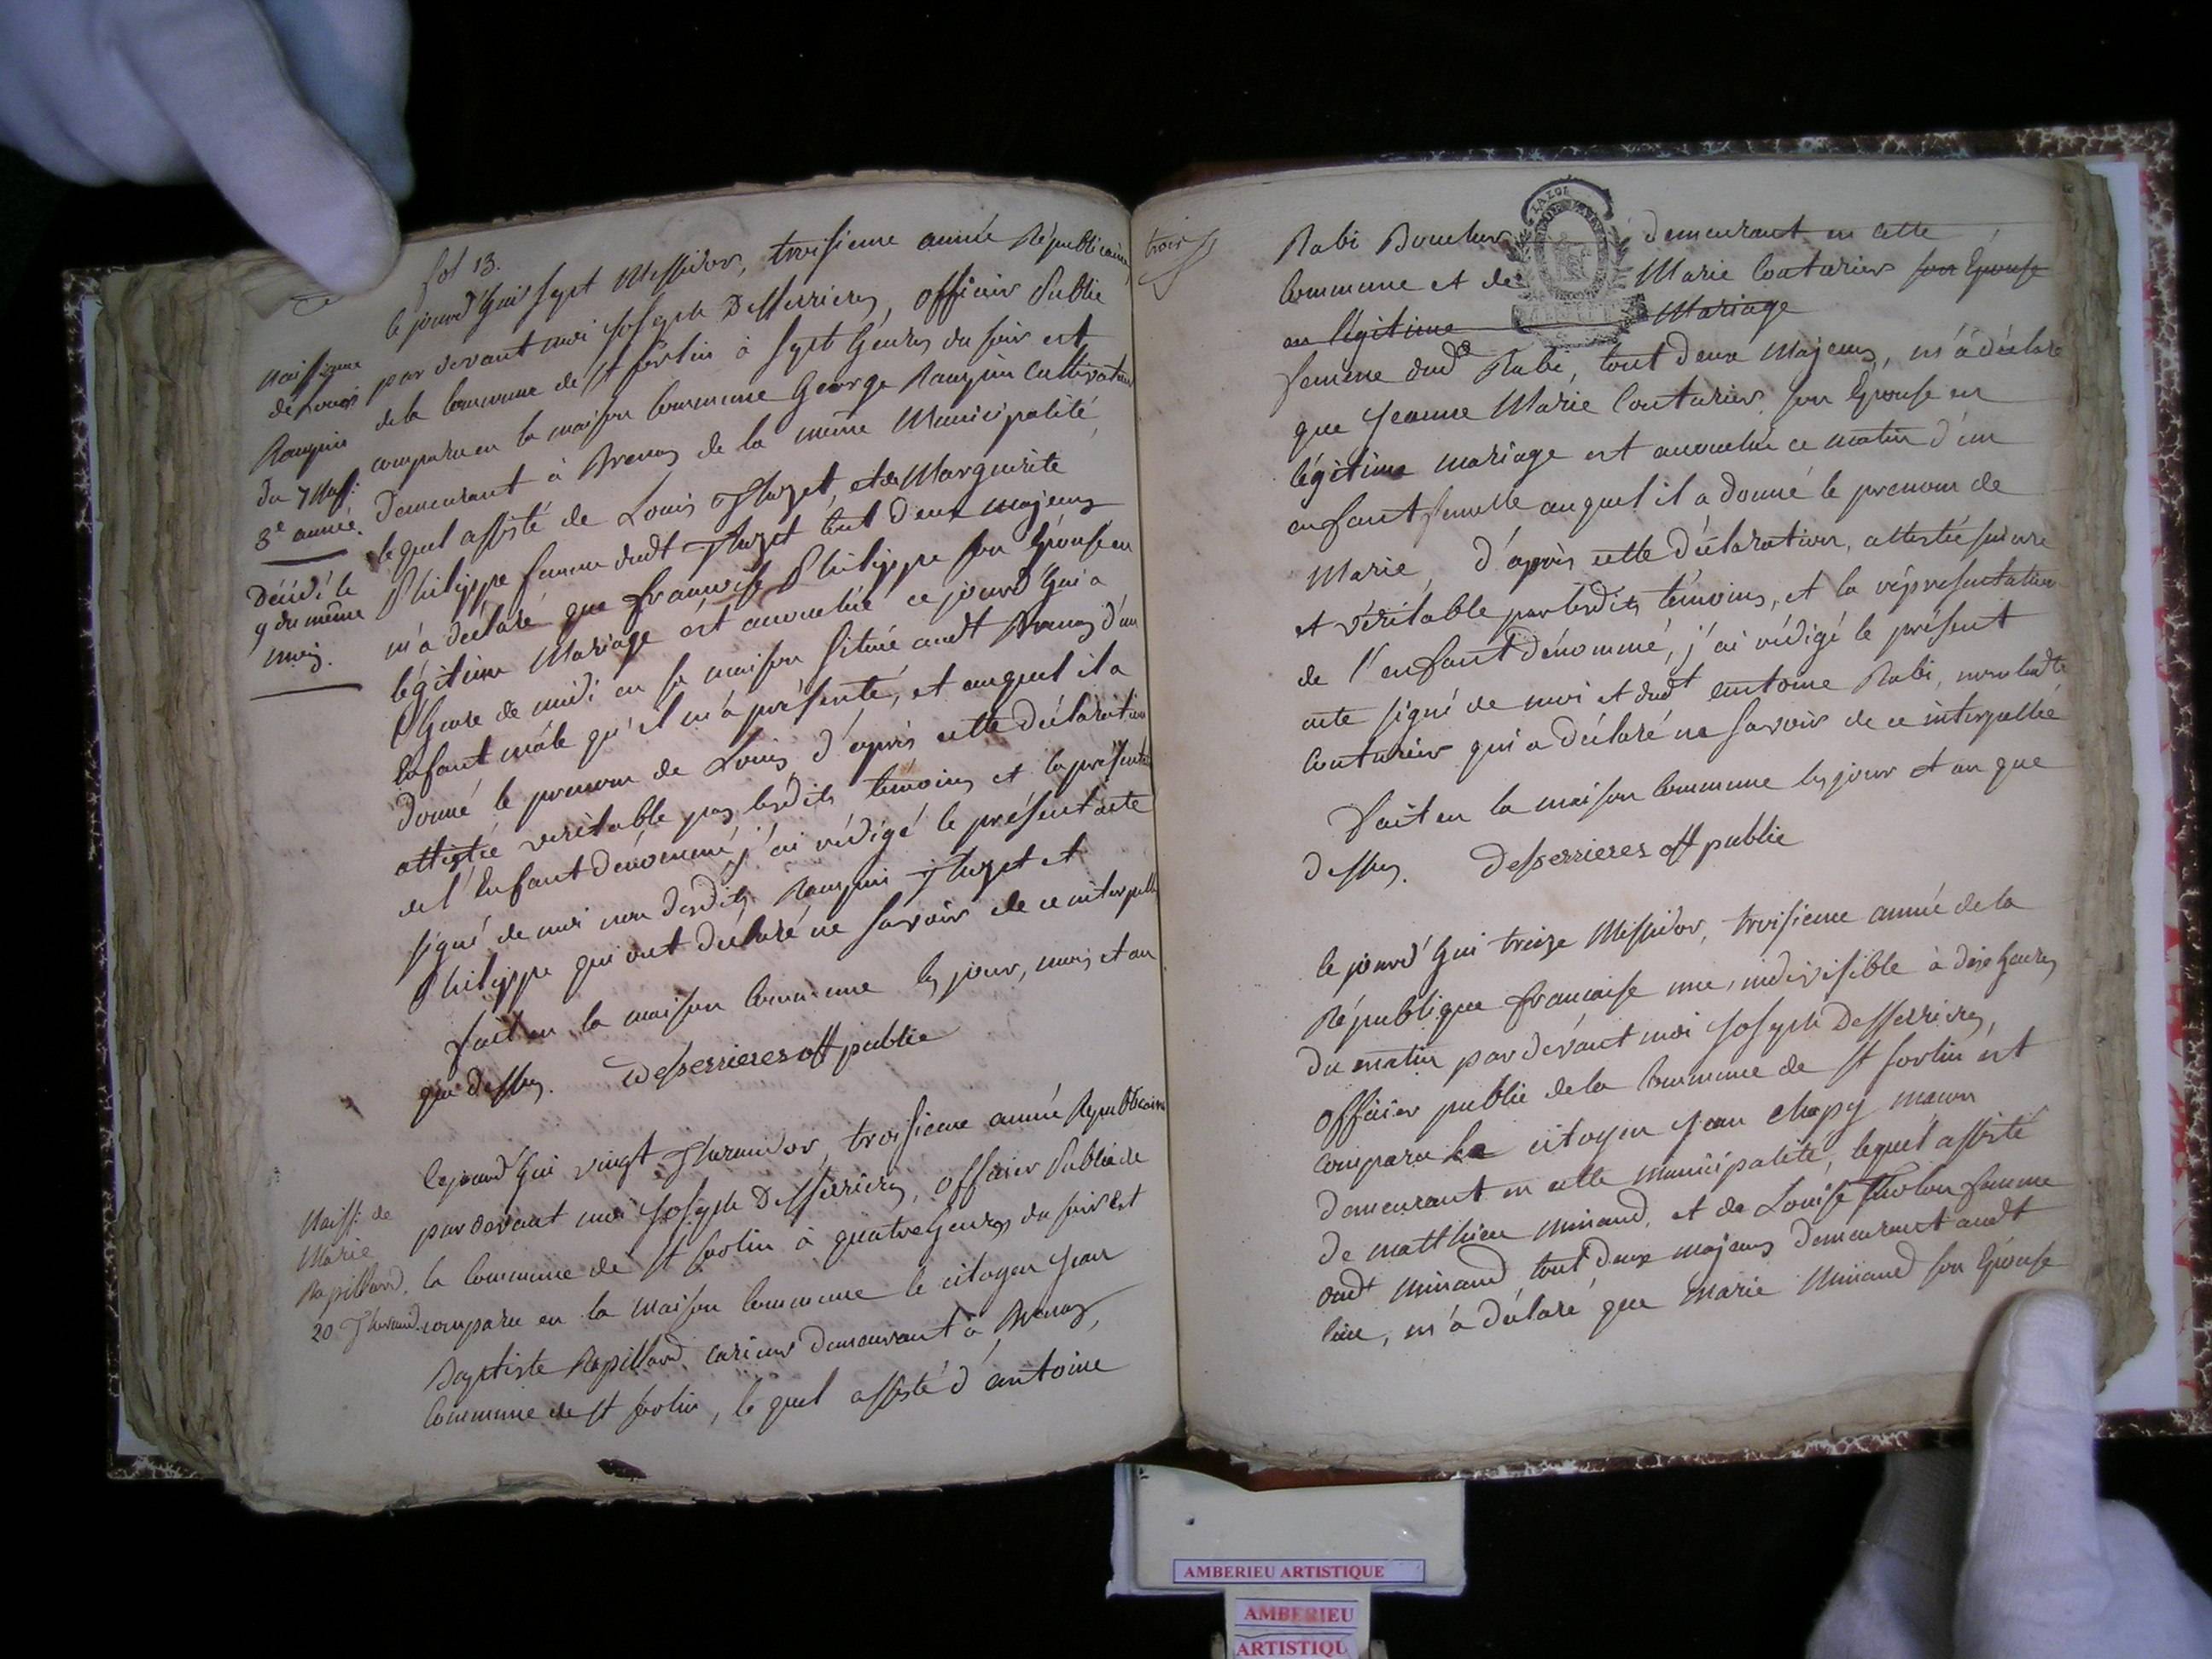 fol 13.
Naissance
de Louis
Raupin
du 7 Mess:
3e année.
Décédé le
9 du même
mois.
le jourd'hui sept Messidor, troisieme année Républicaine,
par devant moi Joseph Desserrieres, officier Public
de la Commune de St Sorlin à sept heures du soir est
comparu en la maison Commune George Raupin Cultivateur
demeurant à Brenaz de la même Municipalité,
lequel assisté de Louis Thuzet, et de Marguerite
Philippe femme dudt Thuzet tout deux majeurs
m'a déclaré que françoise Philippe son Epouse en
légitime Mariage est accouchée ce jourd'hui a
l'heure de midi en sa maison située audt Brenaz d'un
Enfant mâle qu'il m'a présenté, et auquel il a
donné le prenom de Louis d'après cette déclaration
attestée veritable par lesdits temoins et la présentation
de l'Enfant dénommé j'ai rédigé le présent acte
signé de moi non desdits Raupin Thuzet et
Philippe qui ont déclaré ne savoir de ce interpellés
fait en la maison Commune les jour, mois et an
que dessus. Desserrieres off public
Naiss: de
Marie
Rapillard.
20 Thermid.
le jourd'hui vingt Thermidor, troisieme année Republicaine
par devant moi Joseph Desserrieres, officier Public de
la Commune de St Sorlin à quatre heures du soir est
comparu en la maison Commune le citoyen Jean
Baptiste Rapillard, carieur demeurant à Brenaz,
Commune de St Sorlin, le quel assisté d'antoine
trois
LA LOI
Rabi Boucher demeurant en cette
Commune et de Marie Couturier son Epouse
en légitime Mariage
femme dud Rabi, tout deux Majeurs, m'a déclaré
que Jeanne Marie Couturier son Epouse en
légitime mariage est accouchée ce matin d'un
enfant femelle auquel il a donné le prenom de
Marie, d'après cette déclaration, attestée sincere
et véritable par lesdits témoins, et la réprésentation
de l'enfant dénommé, j'ai rédigé le présent
acte signé de moi et dudt antoine Rabi, non ladte
Couturier qui a déclaré ne savoir de ce interpellée
Fait en la maison Commune les jour et an que
dessus. Desserrieres off public
le jourd'hui treize Messidor, troisieme année de la
République francaise une, indivisible à dix heures
du matin par dévant moi Joseph Desserrieres,
officier public de la Commune de St Sorlin est
comparu le citoyen Jean Chapy macon
demeurant en cette municipalité, lequel assisté
de matthieu minand, et de Louise femme
dudt minand tout deux majeurs demeurant audt
lieu, m'a déclaré que Marie Minand son Epouse
AMBERIEU ARTISTIQUE
AMBERIEU
ARTISTIQU